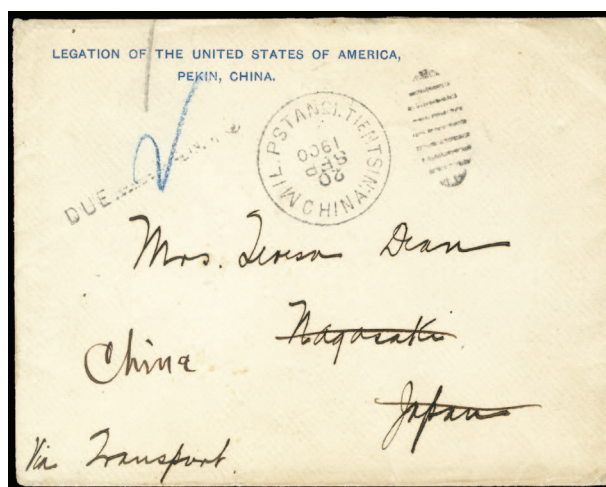 LEGATION OF THE UNITED STATES OF AMERICA,
PEKIN, CHINA.
DUE
MIL. P. STA NO.1. TIENTSIN
CHINA.
20
SEP
1900
Mrs. Teresa Dean
Nagasaki.
China
Japan
Via Transport.